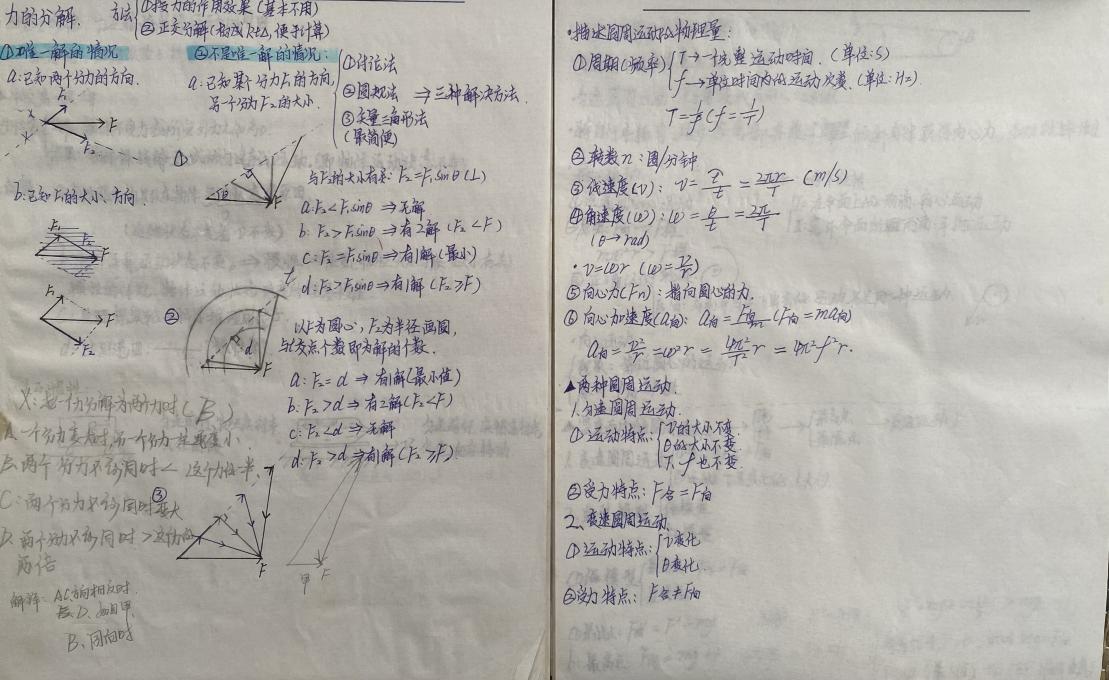 力的分解. 方法
①按力的作用效果(基本不用)
②正交分解(构成Rt△,便于计算)
①唯一解的情况
a:已知两个分力的方向.
F₁
F
F₂
b:已知F₁的大小、方向
F₁
F₂
F
F₁
F
F₂
②不是唯一解的情况:
a:已知某个分力F₁的方向,
另一个分力F₂的大小.
①讨论法
②圆规法 ⇒三种解决方法.
③矢量三角形法
(最简便)
①
θ
F
与F₂的大小有关: F₂=F₁sinθ(⊥)
a:F₂<F₁sinθ⇒无解
b:F₂>F₁sinθ⇒有2解(F₂<F)
c:F₂=F₁sinθ⇒有1解(最小)
d:F₂>F₁sinθ⇒有1解(F₂≥F)
②
d
F
以F为圆心,F₂为半径画圆,
与l交点个数即为解的个数.
a:F₂=d⇒有1解(最小值)
b:F₂>d⇒有2解(F₂<F)
c:F₂<d⇒无解
d:F₂>d⇒有1解(F₂≥F)
③
F
甲 F
(B)
A:一个分力变大时,另一个分力
B:两个分力不能同时<这个力的一半
C:两个分力不能同时变大
D:两个分力不能同时>这个力的
两倍
解释: AC:方向相反时.
B、D.如图甲.
B、同向时
·描述圆周运动的物理量:
①周期(频率)
T→一个完整运动时间.(单位:s)
f→单位时间内的运动次数.(单位:Hz)
T=1/f(f=1/T)
②转数n:圈/分钟
③线速度(v): v=l/t=2πr/T(m/s)
④角速度(ω):ω=θ/t=2π/T
(θ→rad)
·v=ωr(ω=v/r)
⑤向心力(Fn):指向圆心的力.
⑥向心加速度(a向): a向=F向/m(F向=ma向)
a向=v²/r=ω²r=4π²/T²r=4π²f²r.
▲两种圆周运动.
1.匀速圆周运动.
①运动特点:
v的大小不变.
θ的大小不变.
T、f也不变
②受力特点:F合=F向
2、变速圆周运动.
①运动特点:
v变化
θ变化.
②受力特点: F合≠F向